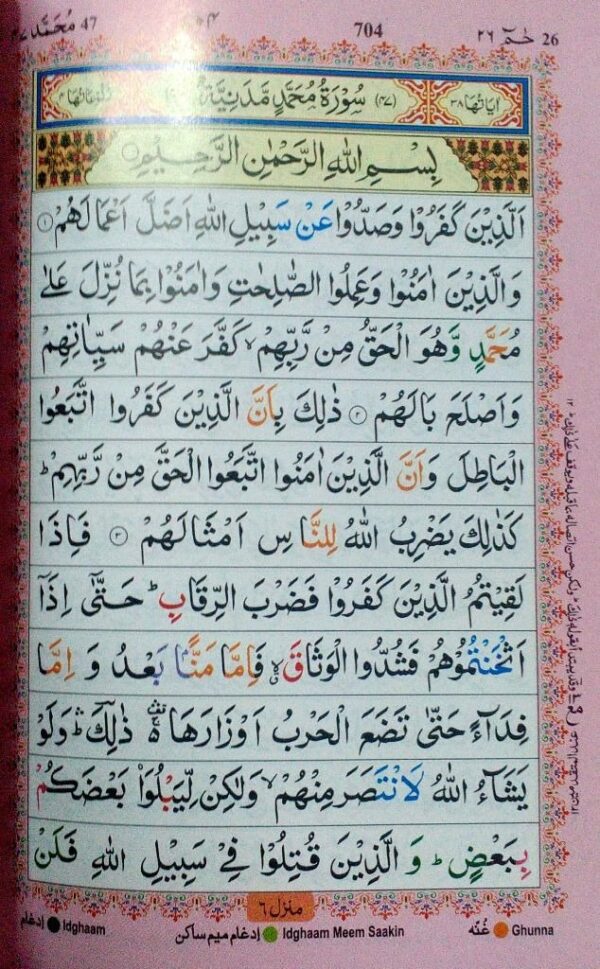 حٰمٓ ٢٦ 26
704
47 مُحَمَّد ٤٧
اٰيَاتُهَا ٣٨
(٤٧) سُوْرَةُ مُحَمَّدٍ مَّدَنِيَّةٌ
بِسْمِ اللّٰهِ الرَّحْمٰنِ الرَّحِيْمِ
اَلَّذِيْنَ كَفَرُوْا وَصَدُّوْا عَنْ سَبِيْلِ اللّٰهِ اَضَلَّ اَعْمَالَهُمْ ۝١
وَالَّذِيْنَ اٰمَنُوْا وَعَمِلُوا الصّٰلِحٰتِ وَاٰمَنُوْا بِمَا نُزِّلَ عَلٰى
مُحَمَّدٍ وَّهُوَ الْحَقُّ مِنْ رَّبِّهِمْ ۙ كَفَّرَ عَنْهُمْ سَيِّاٰتِهِمْ
وَاَصْلَحَ بَالَهُمْ ۝٢ ذٰلِكَ بِاَنَّ الَّذِيْنَ كَفَرُوا اتَّبَعُوا
الْبَاطِلَ وَاَنَّ الَّذِيْنَ اٰمَنُوا اتَّبَعُوا الْحَقَّ مِنْ رَّبِّهِمْ ؕ
كَذٰلِكَ يَضْرِبُ اللّٰهُ لِلنَّاسِ اَمْثَالَهُمْ ۝٣ فَاِذَا
لَقِيْتُمُ الَّذِيْنَ كَفَرُوْا فَضَرْبَ الرِّقَابِ ؕ حَتّٰۤى اِذَاۤ
اَثْخَنْتُمُوْهُمْ فَشُدُّوا الْوَثَاقَ ۙ فَاِمَّا مَنًّۢا بَعْدُ وَ اِمَّا
فِدَآءً حَتّٰى تَضَعَ الْحَرْبُ اَوْزَارَهَا ۛ۬ ذٰلِكَ ۛ ؕ وَلَوْ
يَشَآءُ اللّٰهُ لَانْتَصَرَ مِنْهُمْ ۙ وَلٰكِنْ لِّيَبْلُوَا۠ بَعْضَكُمْ
بِبَعْضٍ ؕ وَ الَّذِيْنَ قُتِلُوْا فِيْ سَبِيْلِ اللّٰهِ فَلَنْ
منزل ٦
Ghunna غُنَّه
Idghaam Meem Saakin اِدغام میم ساکن
Idghaam اِدغام